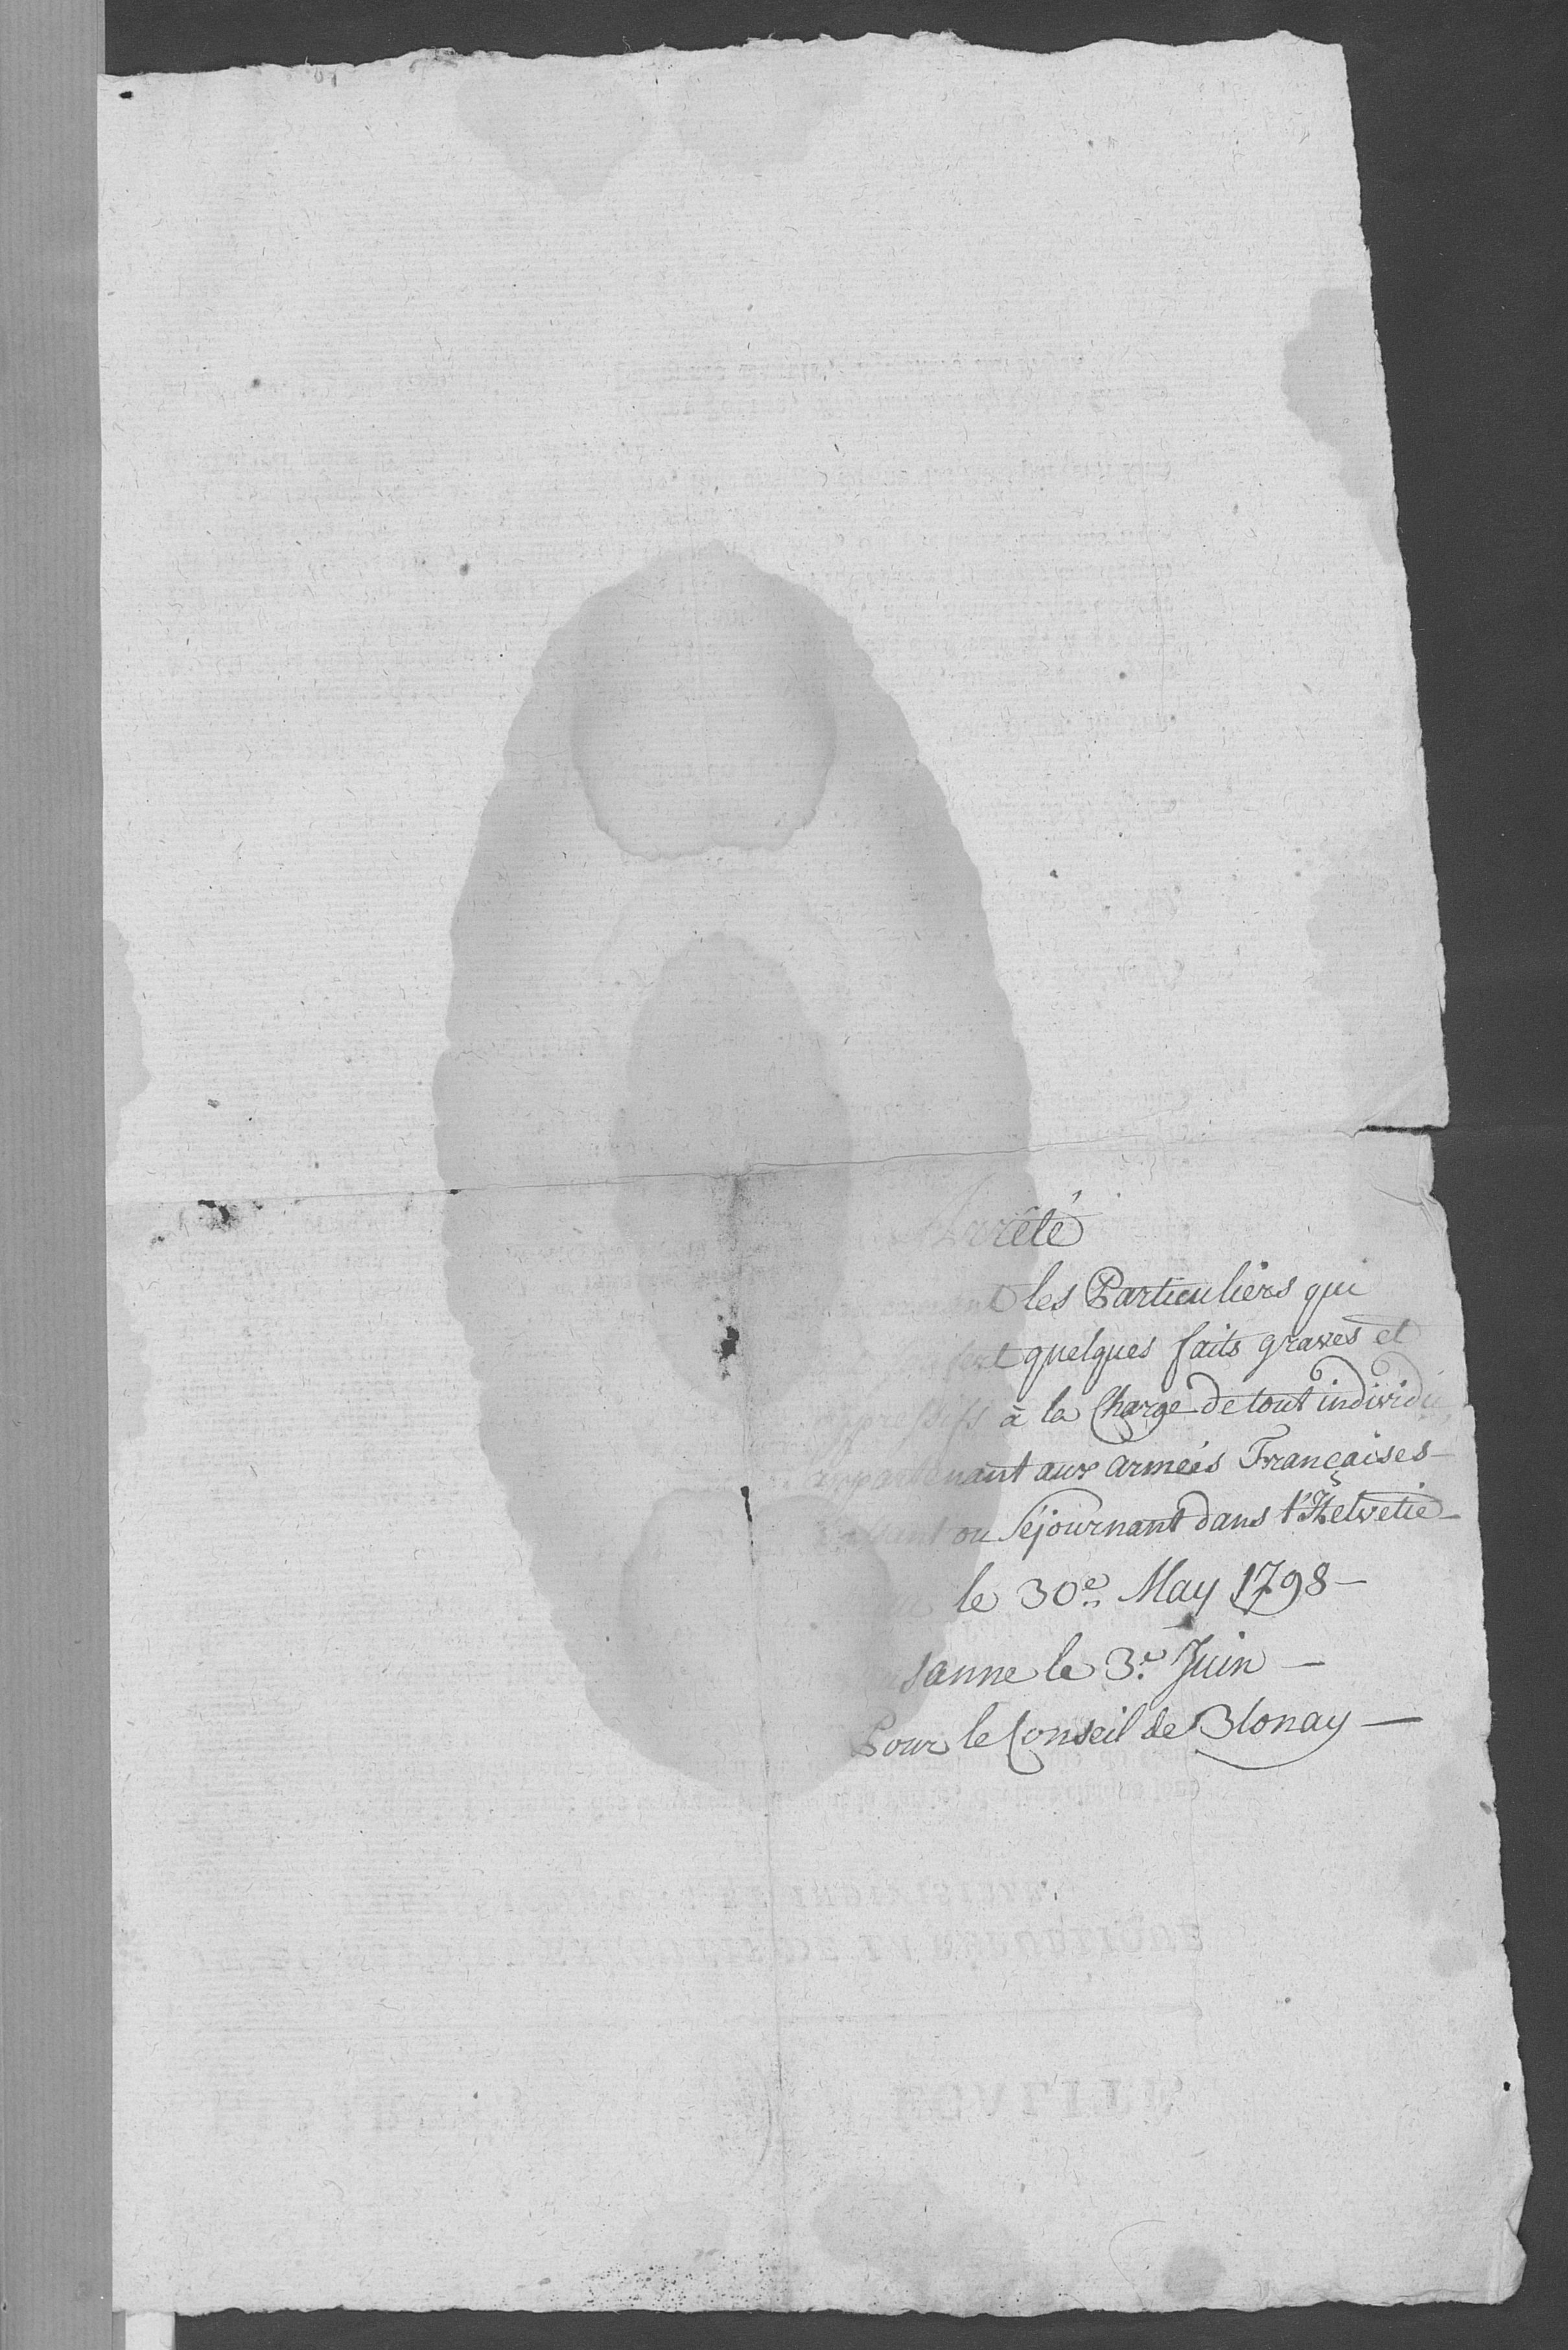 Arrêté
les Particuliers qui
quelques faits graves et
oppressifs à la Charge de tout individu
appartenant aux armées Françaises
ou Séjournant dans l'Helvetie
le 30e. May 1798 –
sanne le 3e. Juin –
Pour le Conseil de Blonay –